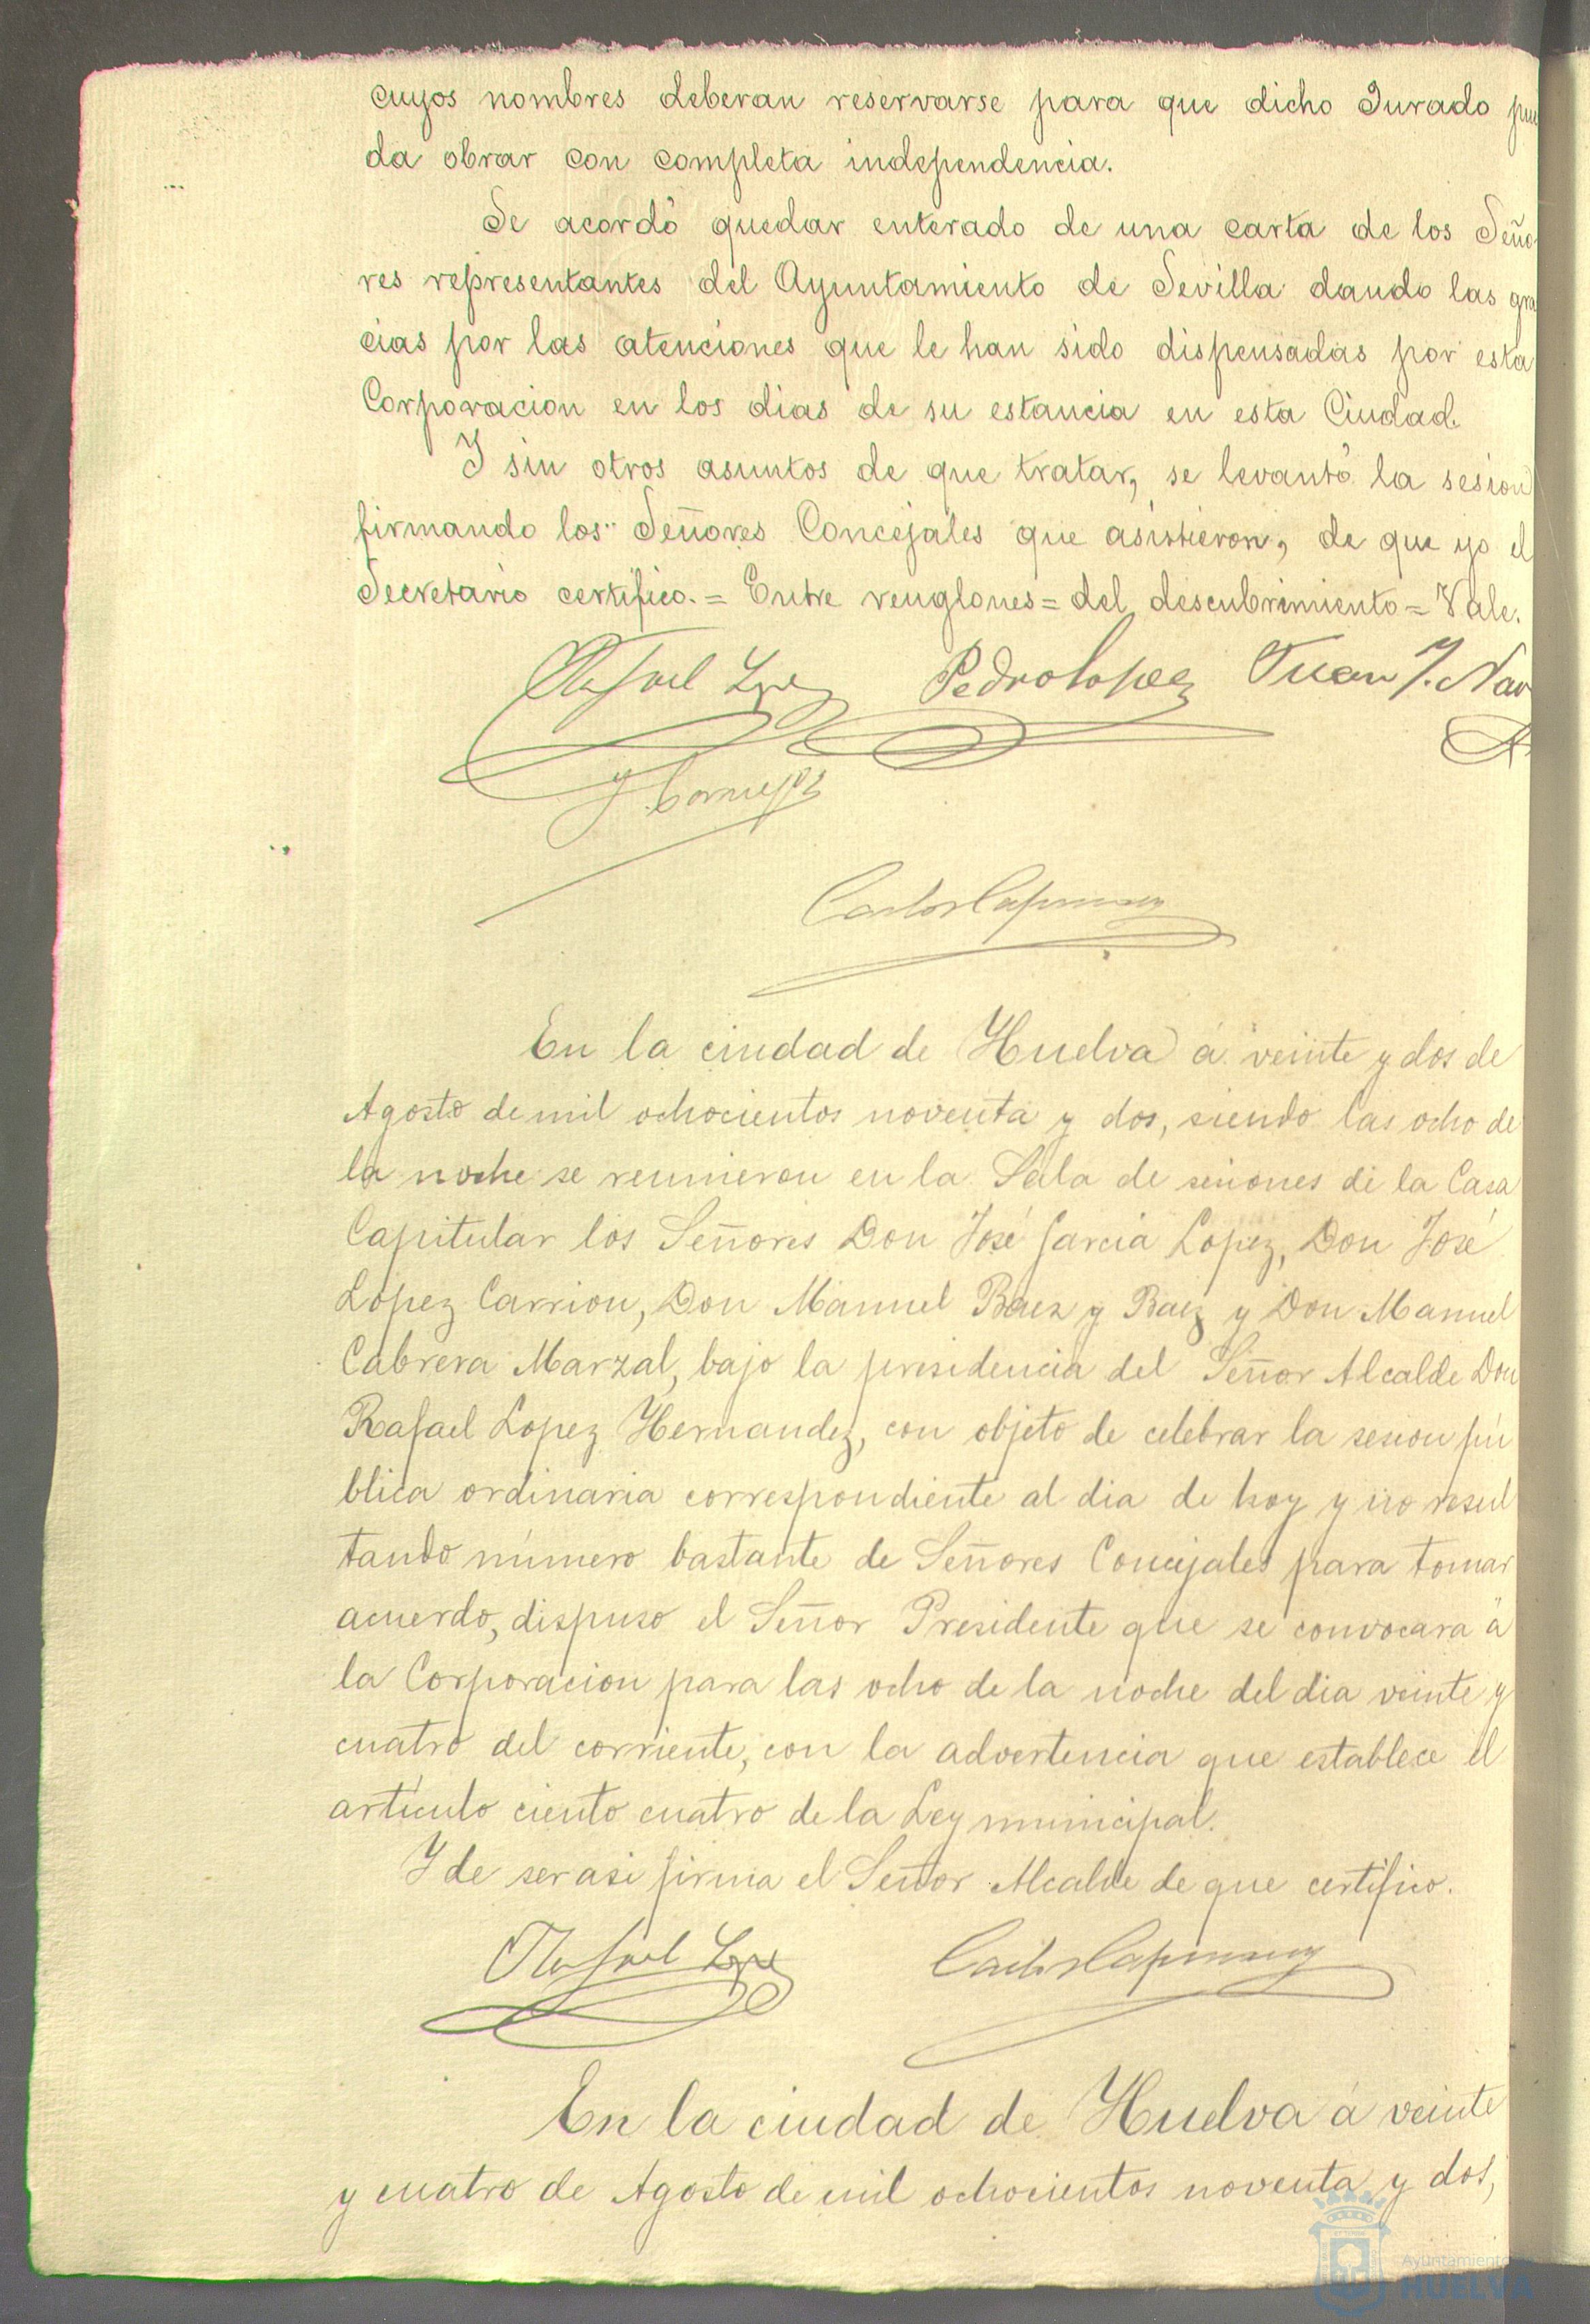 cuyos nombres deberan reservarse para que dicho Jurado pue
da obrar con completa independencia.
Se acordó quedar enterado de una carta de los Seño
res representantes del Ayuntamiento de Sevilla dando las gra
cias por las atenciones que le han sido dispensadas por esta
Corporacion en los dias de su estancia en esta Ciudad.
Y sin otros asuntos de que tratar, se levantó la sesion
firmando los Señores Concejales que asistieron, de que yo el
Secretario certifico.= Entre renglones= del descubrimiento= Vale.
Rafael Lopez Pedro Lopez Juan J. Nav
J. Cornejo
Carlos
En la ciudad de Huelva á veinte y dos de
Agosto de mil ochocientos noventa y dos, siendo las ocho de
la noche se reunieron en la Sala de sesiones de la Casa
Capitular los Señores Don José Garcia Lopez, Don José
Lopez Carrion, Don Manuel Baez y Baez y Don Manuel
Cabrera Marzal, bajo la presidencia del Señor Alcalde Don
Rafael Lopez Hernandez, con objeto de celebrar la sesion pú
blica ordinaria correspondiente al dia de hoy y no resul
tando número bastante de Señores Concejales para tomar
acuerdo, dispuso el Señor Presidente que se convocara á
la Corporacion para las ocho de la noche del dia veinte y
cuatro del corriente, con la advertencia que establece el
artículo ciento cuatro de la Ley municipal.
Y de ser asi firma el Señor Alcalde de que certifico.
Rafael Lopez Carlos
En la ciudad de Huelva á veinte
y cuatro de Agosto de mil ochocientos noventa y dos,
Ayuntamiento
HUELVA